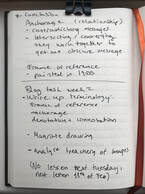 * Conclusion
Anchorage (relationship)
- contradictory message
- interacting / conveying
they work together to
get one obvious message
Frame of reference
- painted in 1928
Blog task week 2
- Write up terminology:
Frame of reference
anchorage
denotation & connotation
- Magritte drawing
- Analyse treachery of images
No lesson next tuesday:
next lesson 11th of Feb